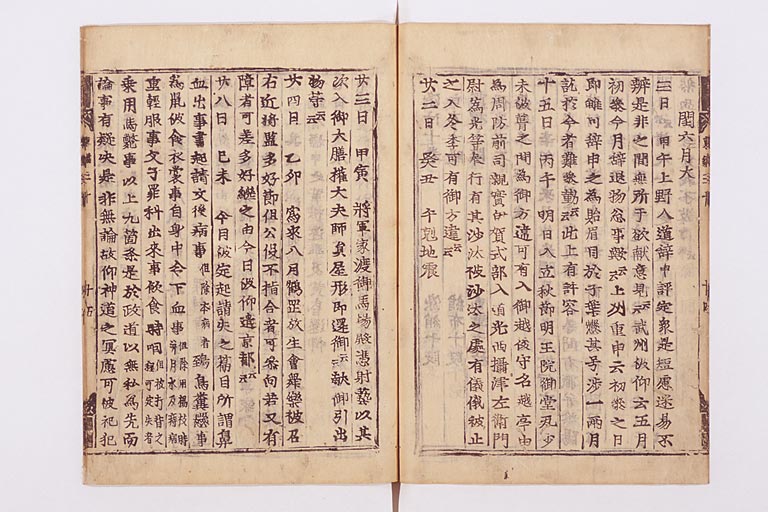 閏六月大
三日 甲午 上野入道辞申評定衆是短慮迷易不
辨是非之間無所于欲献意見云々武州被仰云五月
初参今月辞退物忽事歟云々上州重申云初参之日
即雖可辞申之為貽眉目於子葉憗其号渉一両月
訖於今者難参勤云々此上有許容
十五日 丙午 明日入立秋節明王院御堂
未被葺之間為御方違可有入御越後守名越亭由
為周防前司親實伊賀式部入道光西攝津左衛門
尉為光等奉行有其沙汰被沙汰之處有儀被止
之入冬季可有御方違云々
廿二日 癸丑 午剋地震
廿三日 甲寅 將軍家渡御馬場殿憑射藝以其
次入御大膳權大夫師員屋形即還御云々献御引出
物等云々
廿四日 乙卯 為来八月鶴岡放生會舞樂被召
右近將監多好節但公役不指合者可参向若又有
障者可差多好継之由今日被仰遣京都云々
廿八日 己未 今日被定起請失之篇目所謂鼻
血出事書起請文後病事但除本病者鵄烏糞懸事
為鼠被食衣裳事自身中令下血事但除用楊枝時并月水及痔病
重輕服事父子罪科出来事飲食時咽但被打背之程可定失者
乗用馬斃事以上九箇条是於政道以無私為先而
論事有疑决是非無端故仰神道之冥慮可被犯